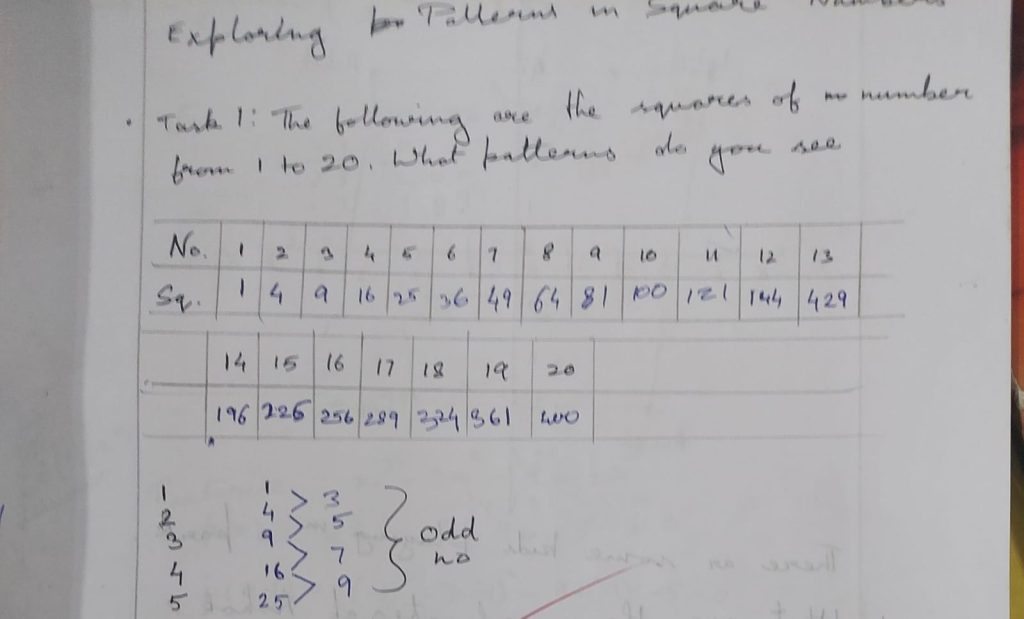 Exploring Patterns in Square Numbers
• Task 1: The following are the squares of number
from 1 to 20. What patterns do you see
No. 1 2 3 4 5 6 7 8 9 10 11 12 13
Sq. 1 4 9 16 25 36 49 64 81 100 121 144 429
14 15 16 17 18 19 20
196 225 256 289 324 361 400
1 1 > 3
2 4 > 5
3 9 > 7
4 16 > 9
5 25
odd
no